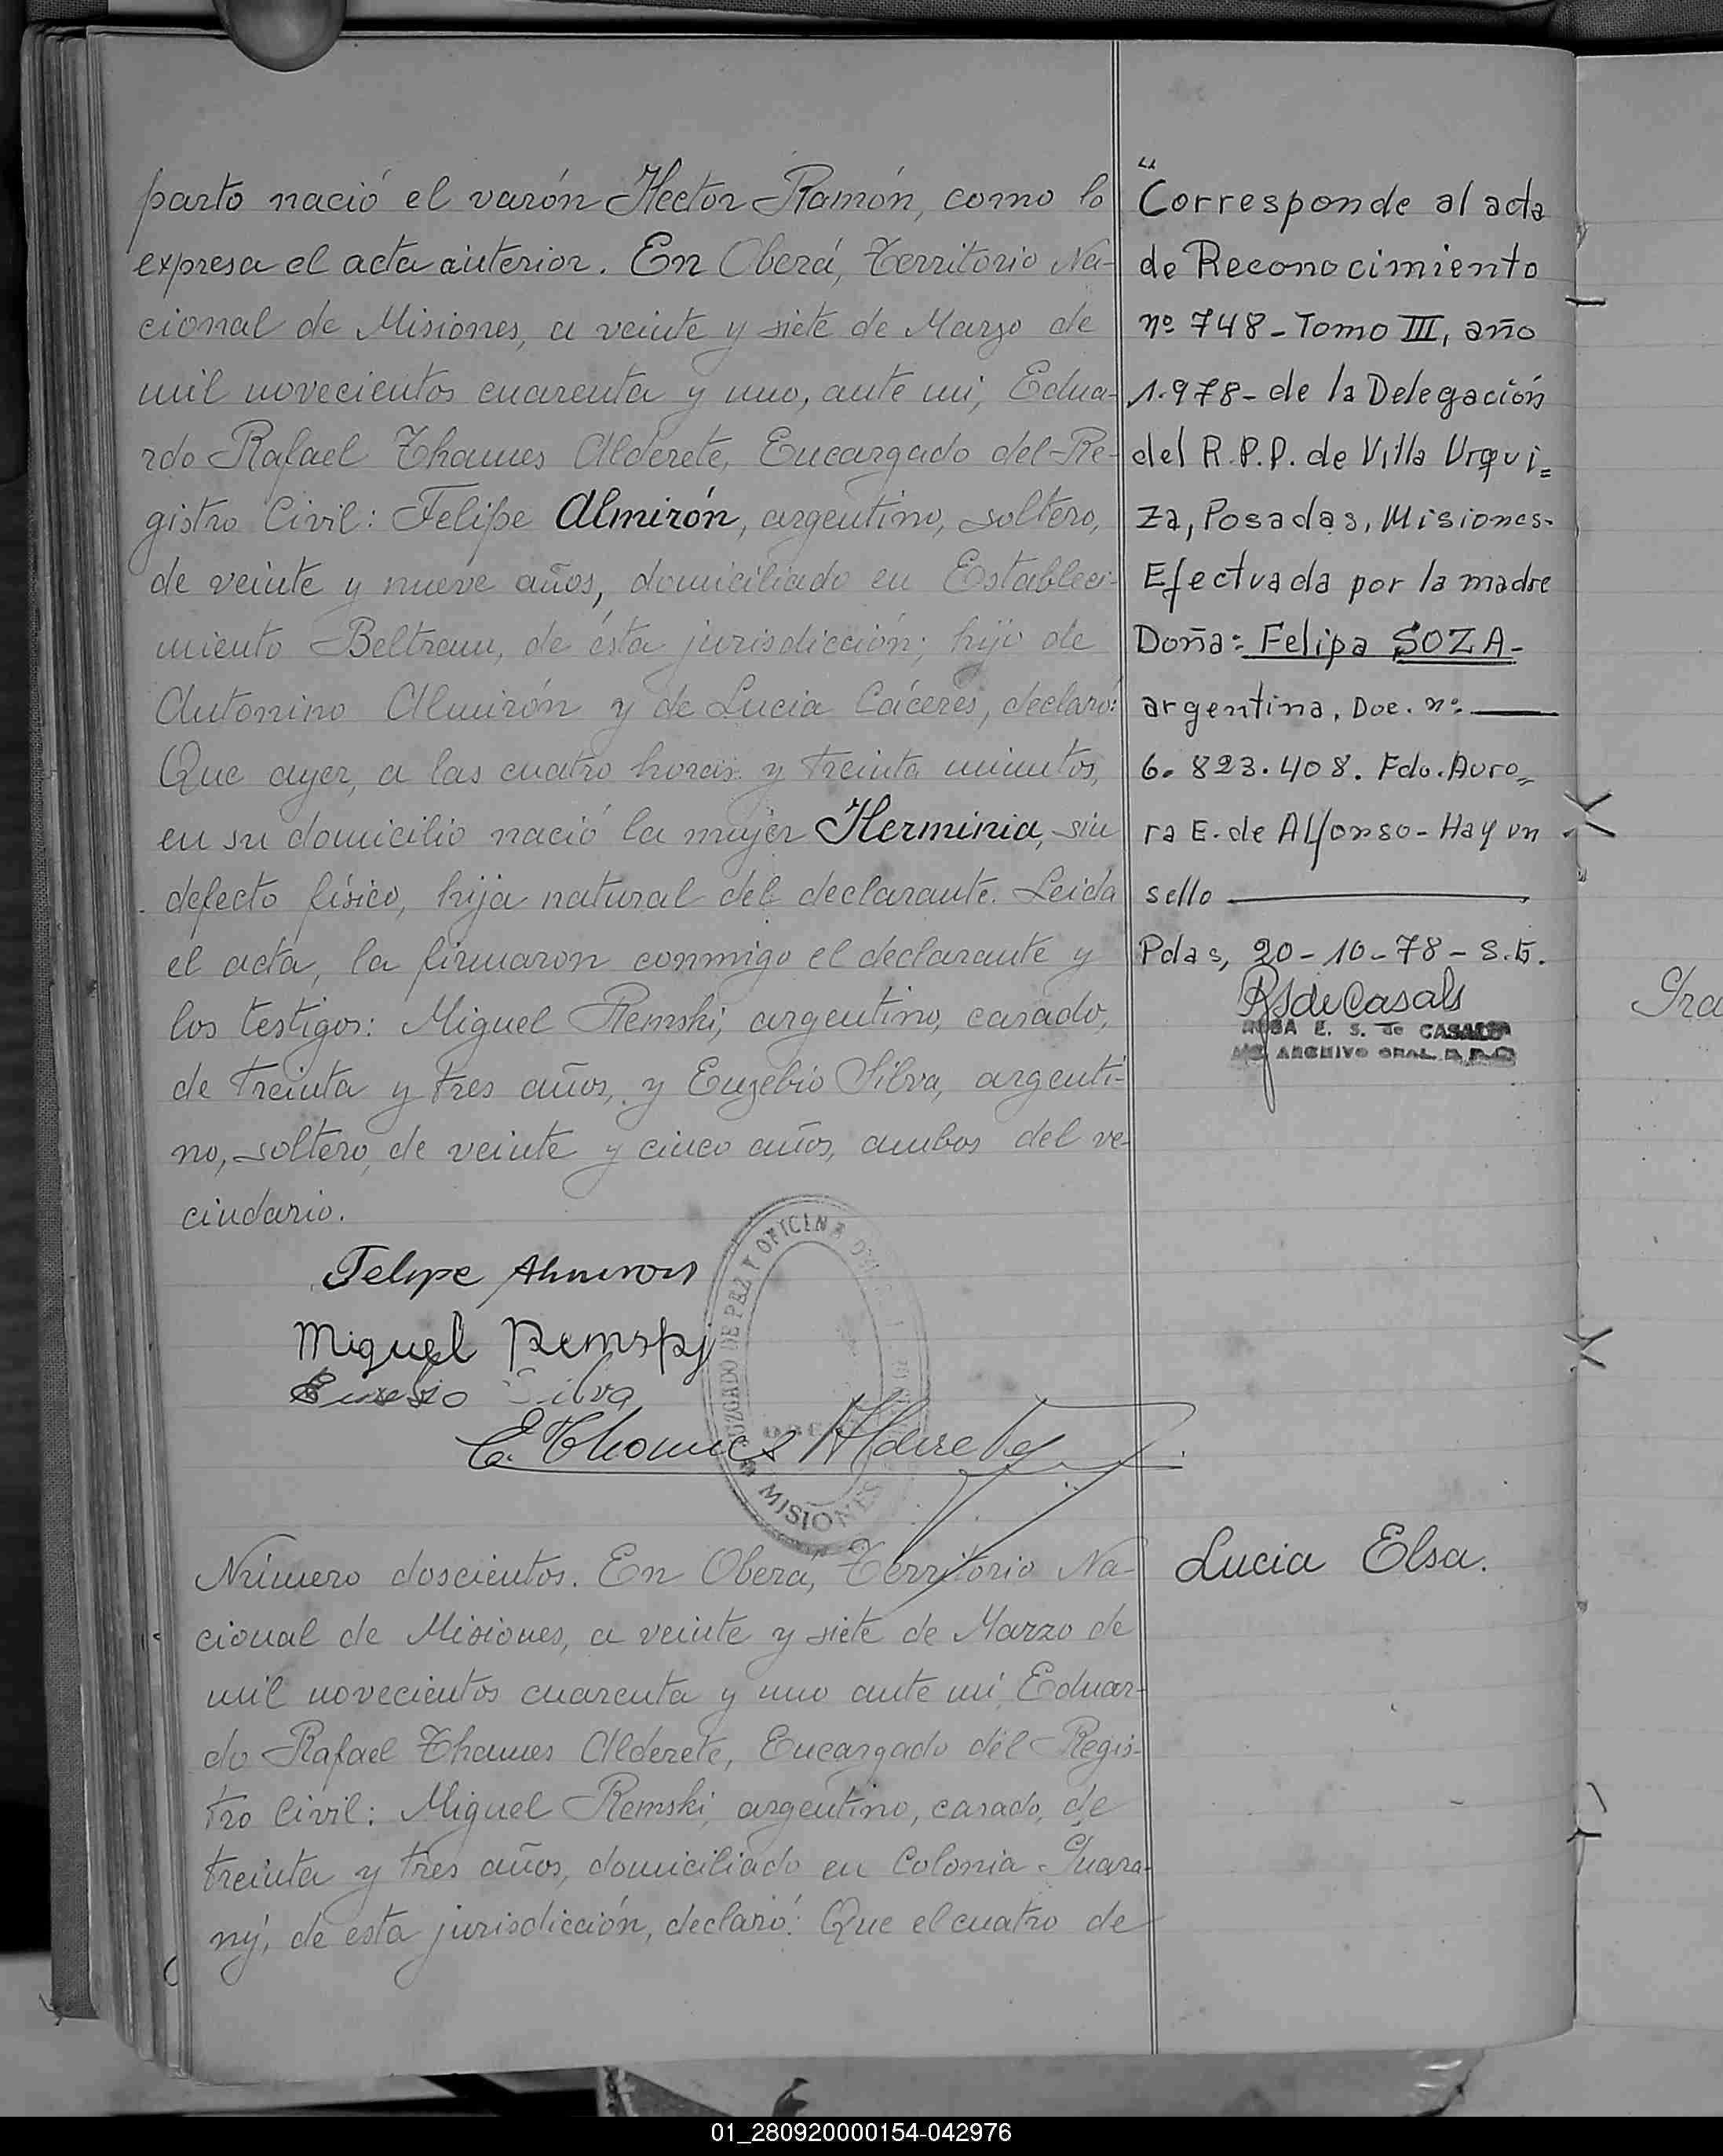 parto nació el varón Hector Ramón, como lo
expresa el acta anterior. En Oberá, Territorio Na-
cional de Misiones, a veinte y siete de Marzo de
mil novecientos cuarenta y uno, ante mi, Edua-
rdo Rafael Thames Alderete, Encargado del Re-
gistro Civil: Felipe Almirón, argentino, soltero,
de veinte y nueve años, domiciliado en Estableci-
miento Beltram, de ésta jurisdicción; hijo de
Antonino Almirón y de Lucia Cáceres, declaró:
Que ayer, a las cuatro horas y treinta minutos,
en su domicilio nació la mujer Herminia, sin
defecto físico, hija natural del declarante. Leida
el acta, la firmaron conmigo el declarante y
los testigos: Miguel Remski, argentino, casado,
de treinta y tres años, y Euzebio Silva, argenti-
no, soltero, de veinte y cinco años, ambos del ve-
cindario.
Felipe Almiron
Miguel Remski
Eusebio Silva
E. Thames Alderete
JUZGADO DE PAZ Y OFICINA
OBERA
MISIONES
"Corresponde al acta
de Reconocimiento
nº 748 - Tomo III, año
1.978 - de la Delegación
del R.P.P. de Villa Urqui=
za, Posadas, Misiones-
Efectuada por la madre
Doña: Felipa SOZA-
argentina, Doc. nº
6.823.408. Fdo. Auro=
ra E. de Alfonso - Hay un
sello
Pdas, 20-10-78 - S.G.
RSdeCasals
ROSA E. S. de CASALS
ARCHIVO GRAL.
Número doscientos. En Oberá, Territorio Na-
cional de Misiones, a veinte y siete de Marzo de
mil novecientos cuarenta y uno ante mi, Eduar-
do Rafael Thames Alderete, Encargado del Regis-
tro Civil: Miguel Remski, argentino, casado, de
treinta y tres años, domiciliado en Colonia Guara-
ný, de esta jurisdicción, declaró: Que el cuatro de
Lucia Elsa.
Gra
01_280920000154-042976